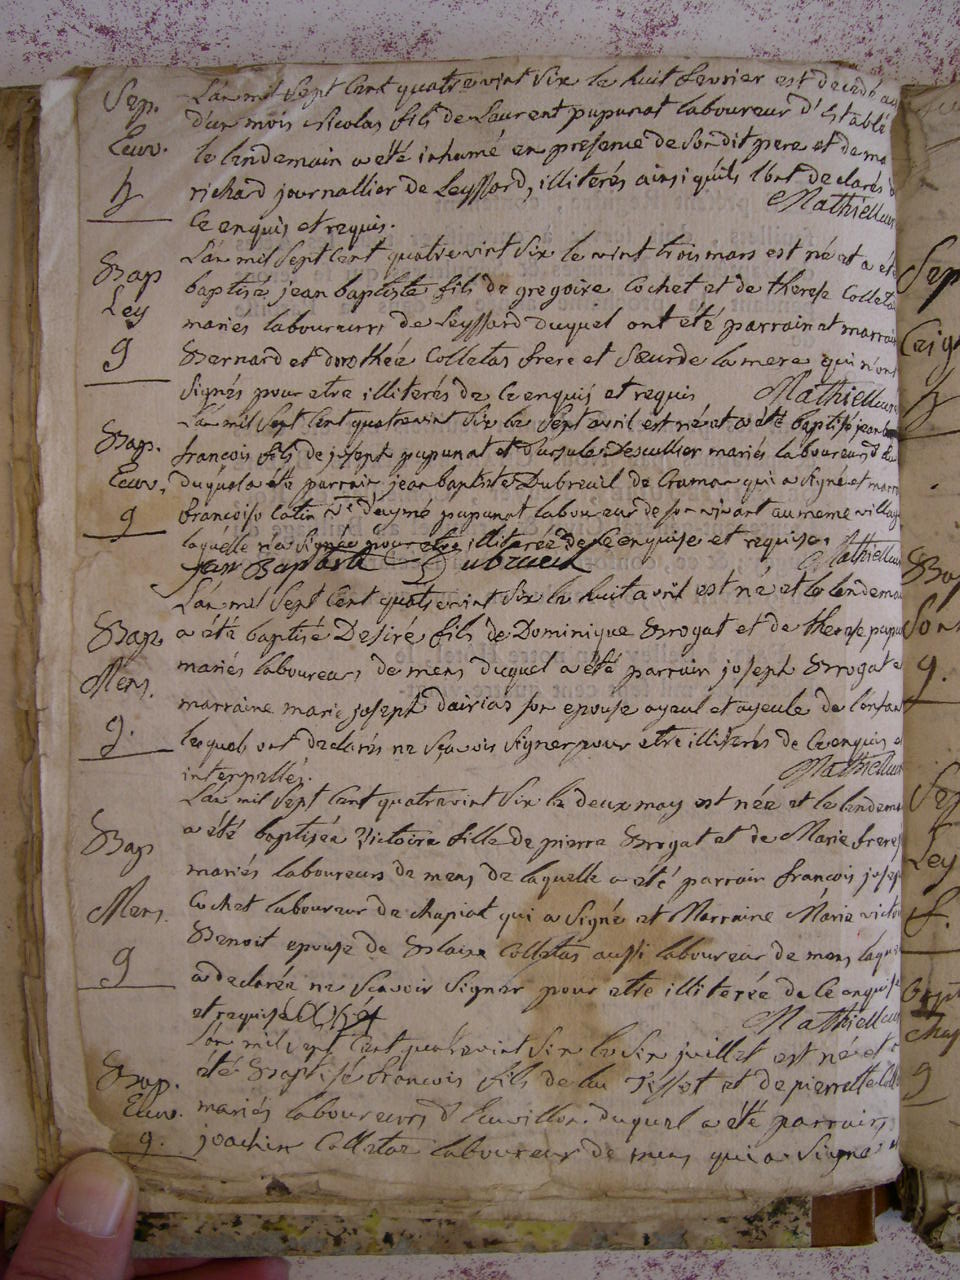 Sep. L'an mil sept cent quatrevint six le huit fevrier est decedé
d'un mois nicolas fils de Laurent pupunat laboureur d'
Euvv. le lendemain a été inhumé en presence de sondit pere et de
h richard journallier de Leyssard, illiterés ainsi quils l'ont declarés
ce enquis et requis. Mathieu
Bap L'an mil sept cent quatrevint six le vint trois mars est né et a été
Ley baptisé jean baptiste fils de gregoire Cochet et de therese Colletas
mariés laboureurs de Leyssard duquel ont été parrain et marraine
g Bernard et dorothée Colletas frere et soeur de la mere qui n'ont
signés pour etre illiterés de ce enquis et requis Mathieu
L'an mil sept cent quatrevint six le sept avril est né et a été baptisé jean
Bap. francois fils de joseph pupunat et d'ursule Descullier mariés laboureurs
Euvv. duquel a été parrain jean baptiste Dubreuil de Craman qui a signé et
g francoise Catin ve d'aymé pupunat laboureur de son vivant au meme village
laquelle n'a signée pour etre illiterée de ce enquise et requise. Mathieu
jean Baptiste Dubreuil
L'an mil sept cent quatrevint six le huit avril est né et le lendemain
Bap. a été baptisé Desiré fils de Dominique Brogat et de therese
Mens. mariés laboureurs de mens duquel a été parrain joseph Brogat
marraine marie joseph dairias son epouse ayeul et ayeule de l'enfan
g. lesquels ont declarés ne scavoir signer pour etre illiterés de ce enquis
interpellés. Mathieu
L'an mil sept cent quatrevint six le deux may est née et le lendem
Bap a été baptisée Victoire fille de pierre Brogat et de Marie
mariés laboureurs de mens de laquelle a été parrain francois josep
Mens. Cochet laboureur de chapiat qui a signé et Marraine Marie
Benoit epouse de Blaise Colletas aussi laboureur de mens
g a declarée ne scavoir signer pour etre illiterée de ce enquise
et requise Mathieu
L'an mil sept cent quatrevint six le six juillet est né et
Bap. été Baptisé francois fils de Tissot et de pierrette
Euvv. mariés laboureurs d' duquel a été parrain
g. joachin Colletas laboureur de mens qui a signé
Sep
h
Bap
g.
Sep
Ley
f.
Bapt
Chap
g